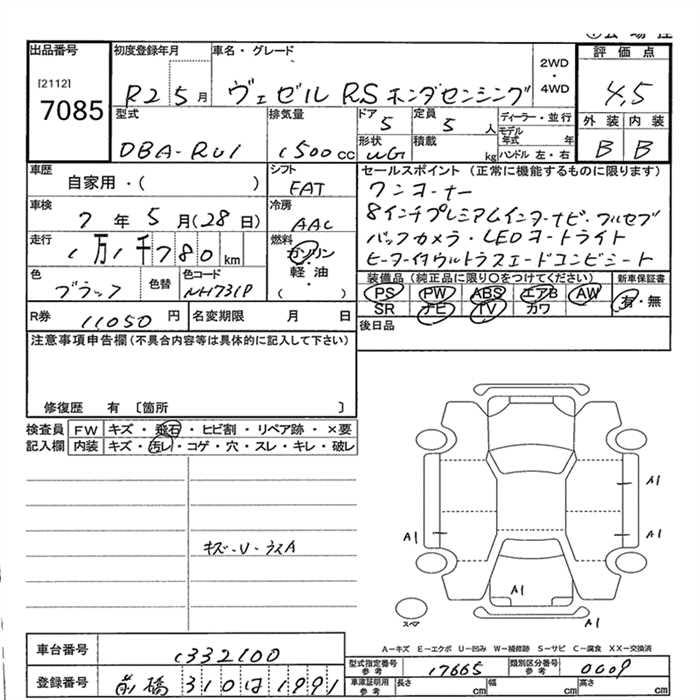 出品番号
[2112]
7085
初度登録年月
R2 5月
車名・グレード
ヴェゼル RS ホンダセンシング
2WD
・
4WD
評価点
4,5
外装 内装
B B
型式
DBA-RU1
排気量
1500 CC
ドア
5
定員
5 人
形状
WG
積載
kg
ディーラー・並行
モデル年式 年
ハンドル 左・右
車歴
自家用・( )
シフト
FAT
セールスポイント(正常に機能するものに限ります)
ワンオーナー
8インチプレミアムインターナビ・フルセグ
バックカメラ・LEDヘッドライト
ヒーター付ウルトラスエードコンビシート
車検
7年5月(28日)
冷房
AAC
走行
1万1千780km
燃料
ガソリン
・
軽油
( )
色
ブラック
色替
色コード
NH731P
装備品(純正品に限り○をつけてください)
新車保証書
PS PW ABS エアB AW
SR ナビ TV カワ
有・無
R券
11050円
名変期限 月 日
後日品
注意事項申告欄(不具合内容等は具体的に記入して下さい)
修復歴 有 〔箇所 〕
検査員 FW キズ・飛石・ヒビ割・リペア跡・×要
記入欄 内装 キズ・汚レ・コゲ・穴・スレ・キレ・破レ
キズ・U・ラスA
A1
A1
A1
A1
A1
スペア
A-キズ E-エクボ U-凹み W-補修跡 S-サビ C-腐食 XX-交換済
車台番号
1332100
型式指定番号
参考
17665
類別区分番号
参考
0009
登録番号
前橋 310は1991
車庫証明用
参考
長さ cm 幅 cm 高さ cm